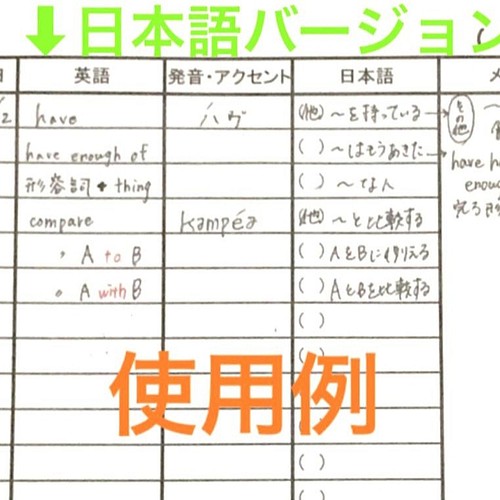 ⬇日本語バージョン
日 英語 発音・アクセント 日本語 メ
/2 have ハヴ (他) ～を持っている その他
have enough of ( ) ～はもうあきた
形容詞 + thing ( ) ～な人
compare kəmpéə (他) ～と比較する
〃 A to B ( ) AをBに例える
〃 A with B ( ) AとBを比較する
( )
( )
使用例
( )
( )
have h
enoug